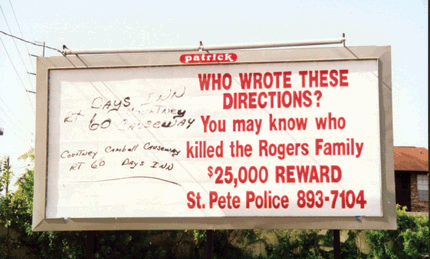 patrick
DAYS INN
RT 60 CAUSEWAY
Courtney Cambell Causeway
RT 60 Days INN
WHO WROTE THESE
DIRECTIONS?
You may know who
killed the Rogers Family
$25,000 REWARD
St. Pete Police 893-7104